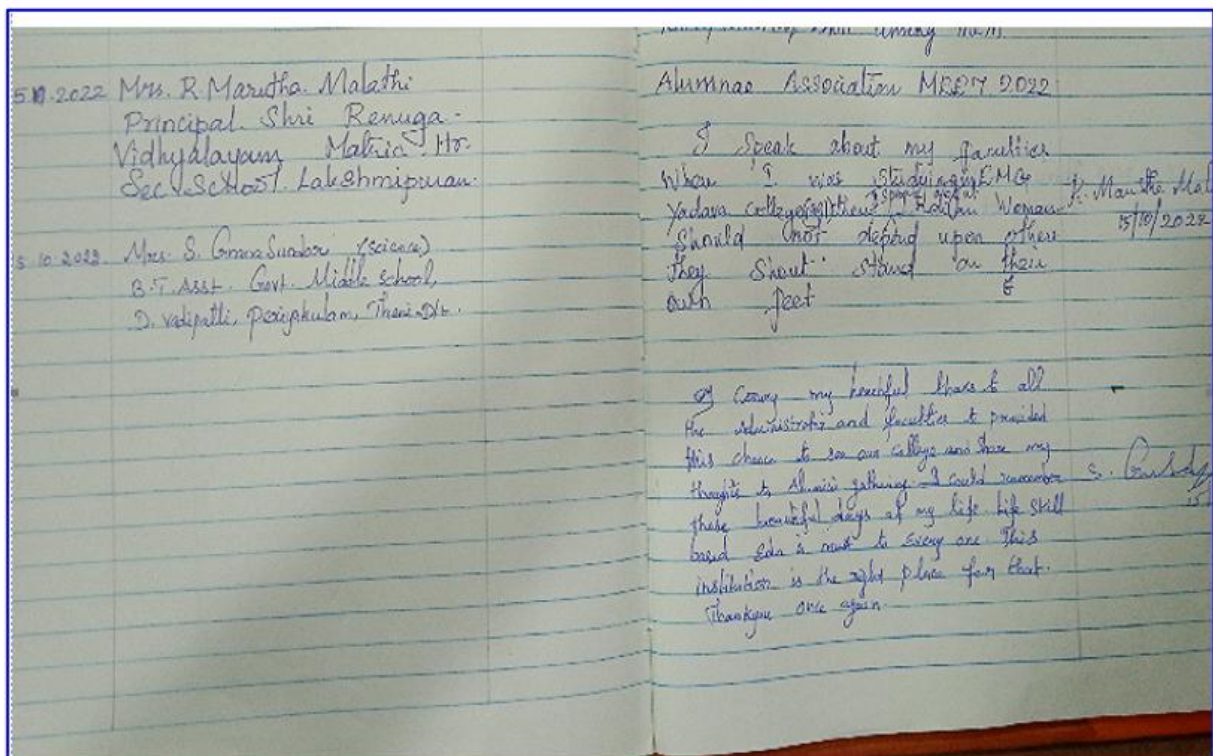 5.10.2022 Mrs. R. Marutha Malathi
Principal. Shri Renuga-
Vidhyalayam Matric. Hr.
Sec. School. Lakshmipuram.
5.10.2022 Mrs. S. Sundar (Science)
B.T. Asst. Govt. Middle School,
D. Vadipatti, Periyakulam, Theni-Dt.
among them
Alumnae Association MEET 2022
I Speak about my faculties
When I was studying in E.M.G
Yadava college Woman
Should not depend upon others
They Shout stand on their
own feet
R. Marutha Mal
15/10/2022
my heartful thaks to all
the and faculties to provided
this chance to see our college and share my
thoughts to Alumini gathering. I could remember
these beautiful days of my life. Life Skill
based Edn is must to Every one. This
institution is the right place for that.
Thankyou once again.
S.
15